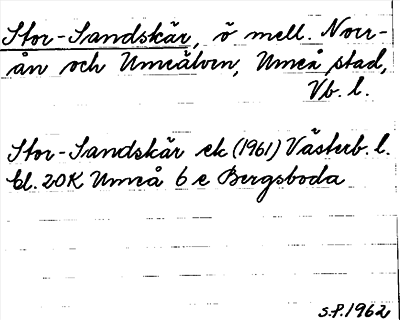 Stor-Sandskär, ö mell. Norr-
ån och Umeälven, Umeå stad,
Vb. l.
Stor-Sandskär ek (1961) Västerb. l.
bl. 20K Umeå 6 e Bergsboda
S.P. 1962